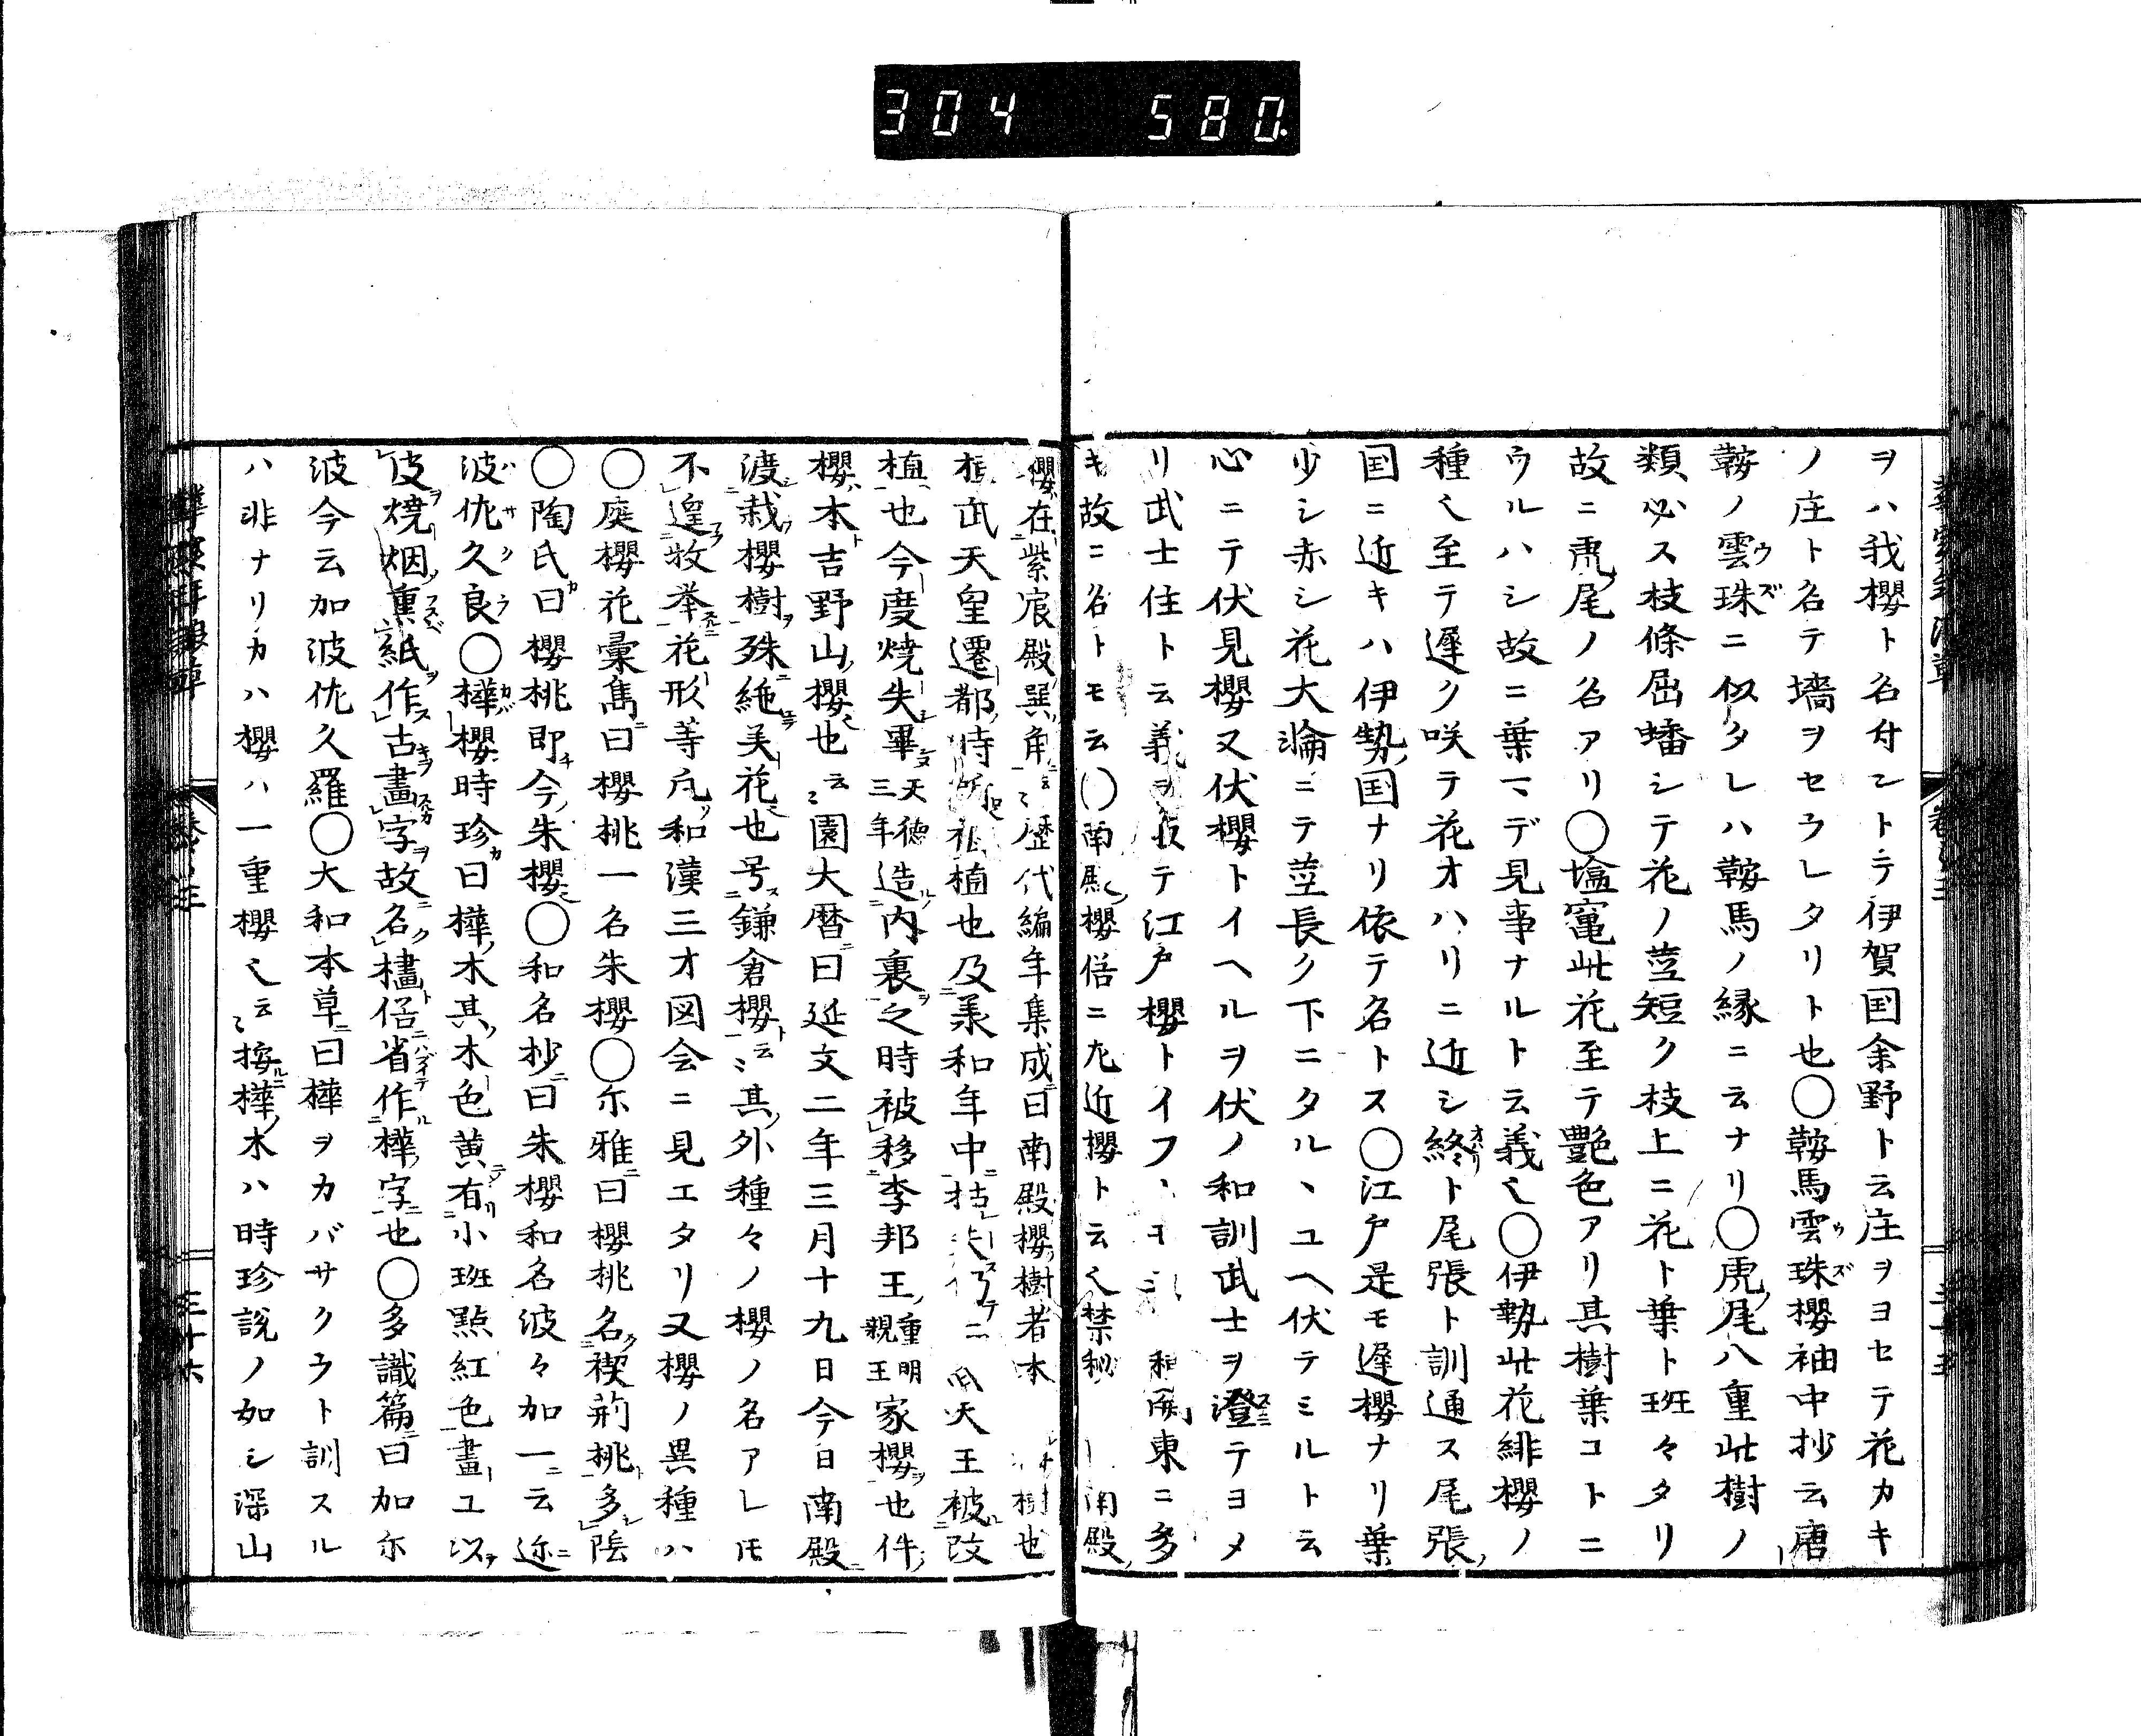 304 580.
ヲハ我櫻ト名付シトテ伊賀国余野ト云庄ヲヨセテ花カキ
ノ庄ト名テ墻ヲセラレタリト也〇鞍馬雲珠櫻袖中抄云唐
鞍ノ雲珠ニ似タレハ鞍馬ノ縁ニ云ナリ〇虎尾八重此樹ノ
類必ス枝條屈蟠シテ花ノ莖短ク枝上ニ花ト葉ト班々タリ
故ニ虎尾ノ名アリ〇塩竃此花至テ艶色アリ其樹葉コトニ
ウルハシ故ニ葉マデ見事ナルト云義也〇伊勢此花緋櫻ノ
種也至テ遲ク咲テ花オハリニ近シ終ト尾張ト訓通ス尾張
国ニ近キハ伊勢国ナリ依テ名トス〇江戸是モ遲櫻ナリ葉
少シ赤シ花大淪ニテ莖長ク下ニタルヽユヘ伏テミルト云
心ニテ伏見櫻又伏櫻トイヘルヲ伏ノ和訓武士ヲ澄テヨメ
リ武士住ト云義ヲ取テ江戸櫻トイフ、東ニ多
キ故ニ名トモ云〇南殿櫻俗ニ左近櫻ト云也禁秘南殿
櫻在紫宸殿巽角云々歴代編年集成曰南殿櫻樹者本樹也
桓武天皇遷都時所植也及羕和年中枯天王被改
植也今度燒失畢天德三年造內裏之時被移李邦王重明親王家櫻也件
櫻木吉野山櫻也云々園大暦曰延文二年三月十九日今日南殿
渡栽櫻樹殊絶美花也号鎌倉櫻云々其外種々ノ櫻ノ名アレモ
不遑枚挙花形等凡和漢三才図会ニ見エタリ又櫻ノ異種ハ
〇庭櫻花彙雋曰櫻桃一名朱櫻〇尓雅曰櫻桃名楔荊桃多陰
〇陶氏曰櫻桃即今朱櫻〇和名抄曰朱櫻和名波々加一云迩
波佐久良〇樺櫻時珍曰樺木其木色黄有小班點紅色畫ユ以
皮燒烟熏紙作古畫字故名㯆俗省作樺字也〇多識篇曰加尓
波今云加波佐久羅〇大和本草曰樺ヲカバサクラト訓スル
ハ非ナリカハ櫻ハ一重櫻也云々按樺木ハ時珍説ノ如シ深山
三十六